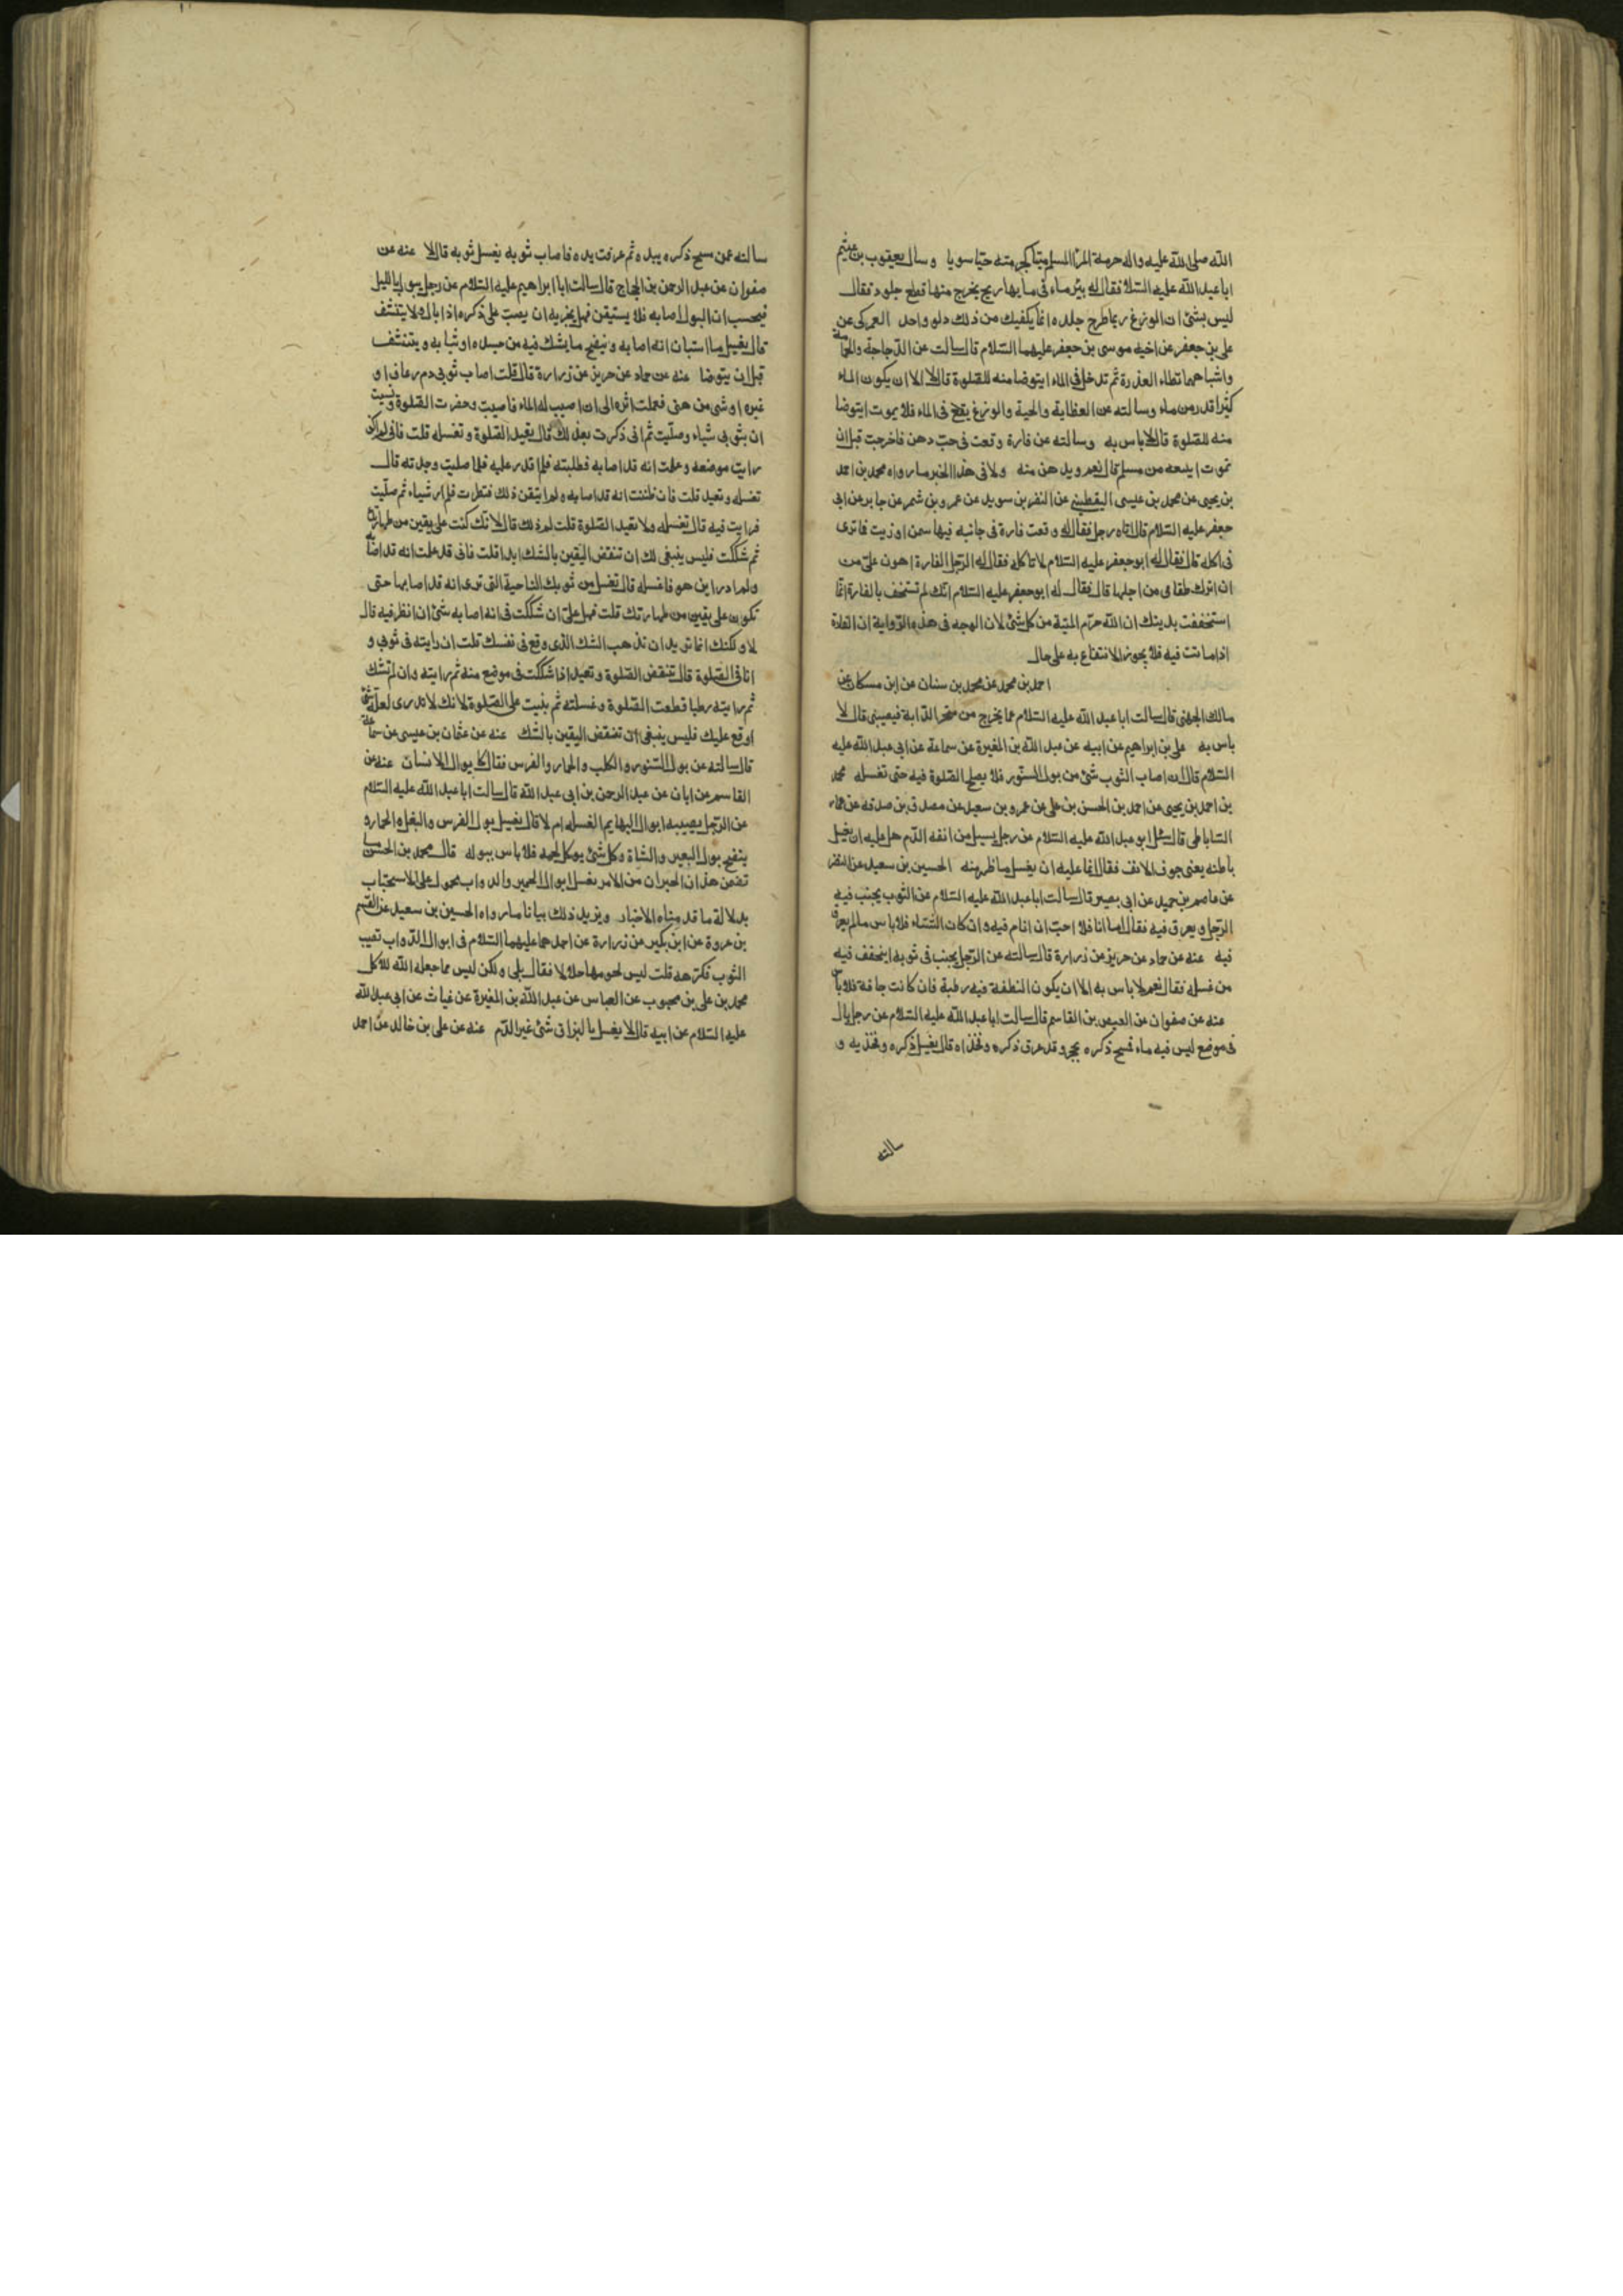 الله صلى الله عليه واله حرمة المرء المسلم ميتا كحرمته حيا سويا وسال يعقوب بن عثيم
ابا عبد الله عليه السلام فقال له بئر ماء في مائها ريح يخرج منها قطع جلود فقال
ليس بشئ ان الوزغ ربما طرح جلده انما يكفيك من ذلك دلو واحد العمركى عن
على بن جعفر عن اخيه موسى بن جعفر عليهما السلام قال سالت عن الدجاجة والحمامة
واشباههما تطاء العذرة ثم تدخل فى الماء ايتوضا منه للصلوة قال لا الا ان يكون الماء
كثيرا قدر من ماء وسالته عن العظاية والحية والوزغ يقع فى الماء فلا يموت ايتوضا
منه للصلوة قال لا باس به وسالته عن فارة وقعت فى حب دهن فاخرجت قبل ان
تموت ايبيعه من مسلم قال نعم ويدهن منه ولا فى هذا الخبر ما رواه محمد بن احمد
بن يحيى عن محمد بن عيسى اليقطينى عن النضر بن سويد عن عمرو بن شمر عن جابر عن ابى
جعفر عليه السلام قال اتاه رجل فقال له وقعت فارة فى خابيه فيها سمن او زيت فما ترى
فى اكله قال فقال له ابو جعفر عليه السلام لا تاكله فقال له الرجل الفارة اهون على من
ان اترك طعامى من اجلها قال فقال له ابو جعفر عليه السلام انك لم تستخف بالفارة انما
استخففت بدينك ان الله حرم الميتة من كل شئ لان الوجه فى هذه الرواية ان الفارة
اذا ماتت فيه فلا يجوز الانتفاع به على حال
احمد بن محمد عن محمد بن سنان عن ابن مسكان عن
مالك الجهنى قال سالت ابا عبد الله عليه السلام عما يخرج من منخر الدابة فيصيبنى قال لا
باس به على بن ابراهيم عن ابيه عن عبد الله بن المغيرة عن سماعة عن ابى عبد الله عليه
السلام قال ان اصاب الثوب شئ من بول السنور فلا يصلح الصلوة فيه حتى تغسله محمد
بن احمد بن يحيى عن احمد بن الحسن بن على عن عمرو بن سعيد عن مصدق بن صدقه عن عمار
الساباطى قال سئل ابو عبد الله عليه السلام عن رجل يسيل من انفه الدم هل عليه ان يغسل
باطنه يعنى جوف الانف فقال انما عليه ان يغسل ما ظهر منه الحسين بن سعيد عن النضر
عن عاصم بن حميد عن ابى بصير قال سالت ابا عبد الله عليه السلام عن الثوب يجنب فيه
الرجل ويعرق فيه فقال اما انا فلا احب ان انام فيه وان كان الشتاء فلا باس ما لم يعرق
فيه عنه عن حماد عن حريز عن زرارة قال سالته عن الرجل يجنب فى ثوبه ايتجفف فيه
من غسله فقال نعم لا باس به الا ان يكون النطفة فيه رطبة فان كانت جافة فلا باس
عنه عن صفوان عن العيص بن القاسم قال سالت ابا عبد الله عليه السلام عن رجل بال
فى موضع ليس فيه ماء فمسح ذكره بحجر وقد عرق ذكره وفخذاه قال يغسل ذكره وفخذيه و
سالته
سالته عمن مسح ذكره بيده ثم عرقت يده فاصاب ثوبه يغسل ثوبه قال لا عنه عن
صفوان عن عبد الرحمن بن الحجاج قال سالت ابا ابراهيم عليه السلام عن رجل يبول بالليل
فيحسب ان البول اصابه فلا يستيقن فهل يجزيه ان يصب على ذكره اذا بال ولا يتنشف
قال يغسل ما استبان انه اصابه وينضح ما يشك فيه من جسده او ثيابه ويتنشف
قبل ان يتوضا عنه عن حماد عن حريز عن زرارة قال قلت اصاب ثوبى دم رعاف او
غيره او شى من منى فعلمت اثره الى ان اصيب له الماء فاصبت وحضرت الصلوة ونسيت
ان بثوبى شياء وصليت ثم انى ذكرت بعد ذلك قال يعيد الصلوة وتغسله قلت فانى لم اكن
رايت موضعه وعلمت انه قد اصابه فطلبته فلم اقدر عليه فلما صليت وجدته قال
تغسله وتعيد قلت فان ظننت انه قد اصابه ولم اتيقن ذلك فنظرت فلم ار شياء ثم صليت
فرايت فيه قال تغسله ولا تعيد الصلوة قلت لم ذلك قال لانك كنت على يقين من طهارتك
ثم شككت فليس ينبغى لك ان تنقض اليقين بالشك ابدا قلت فانى قد علمت انه قد اصابه
ولم ادر اين هو فاغسله قال تغسل من ثوبك الناحية التى ترى انه قد اصابها حتى
تكون على يقين من طهارتك قلت فهل على ان شككت فى انه اصابه شئ ان انظر فيه قال
لا ولكنك انما تريد ان تذهب الشك الذى وقع فى نفسك قلت ان رايته فى ثوبى و
انا فى الصلوة قال تنقض الصلوة وتعيد اذا شككت فى موضع منه ثم رايته وان لم تشك
ثم رايته رطبا قطعت الصلوة وغسلته ثم بنيت على الصلوة لانك لا تدرى لعله شئ
اوقع عليك فليس ينبغى ان تنقض اليقين بالشك عنه عن عثمان بن عيسى عن سماعة
قال سالته عن بول السنور والكلب والحمار والفرس فقال كابوال الانسان عنه عن
القاسم عن ابان عن عبد الرحمن بن ابى عبد الله قال سالت ابا عبد الله عليه السلام
عن الرجل يصيبه ابوال البهايم الغسله ام لا قال يغسل بول الفرس والبغل والحمار و
ينضح بول البعير والشاة وكل شئ يوكل لحمه فلا باس ببوله قال محمد بن الحسن ما
تضمن هذان الخبران من الامر بغسل ابوال الحمير والدواب محمول على الاستحباب
بدلالة ما قدمناه الاخبار ويزيد ذلك بيانا ما رواه الحسين بن سعيد عن القسم
بن عروة عن ابن بكير عن زرارة عن احدهما عليهما السلام فى ابوال الدواب تصيب
الثوب فكرهه قلت ليس لحومها حلالا فقال بلى ولكن ليس مما جعله الله للاكل
محمد بن على بن محبوب عن العباس عن عبد الله بن المغيرة عن غياث عن ابى عبد الله
عليه السلام عن ابيه قال لا يغسل بالبزاق شئ غير الدم عنه عن على بن خالد عن احمد